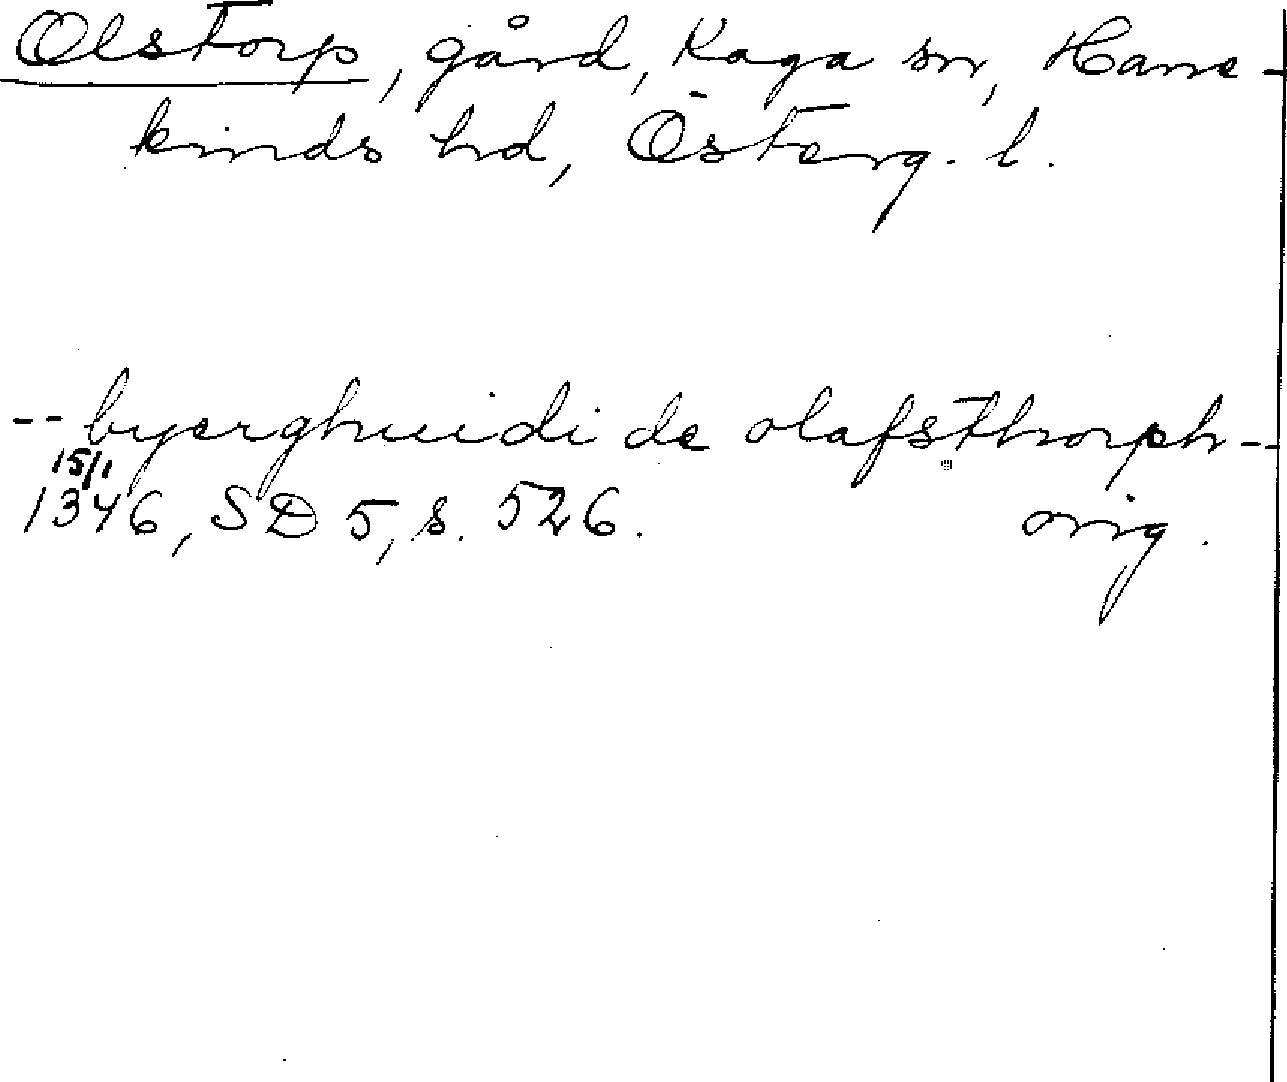 Olstorp, gård, Kaga sn, Hane-
kinds hd, Österg. l.
-- byerghuidi de olafsthorph --
15/1
1346, SD 5, s. 526. orig.